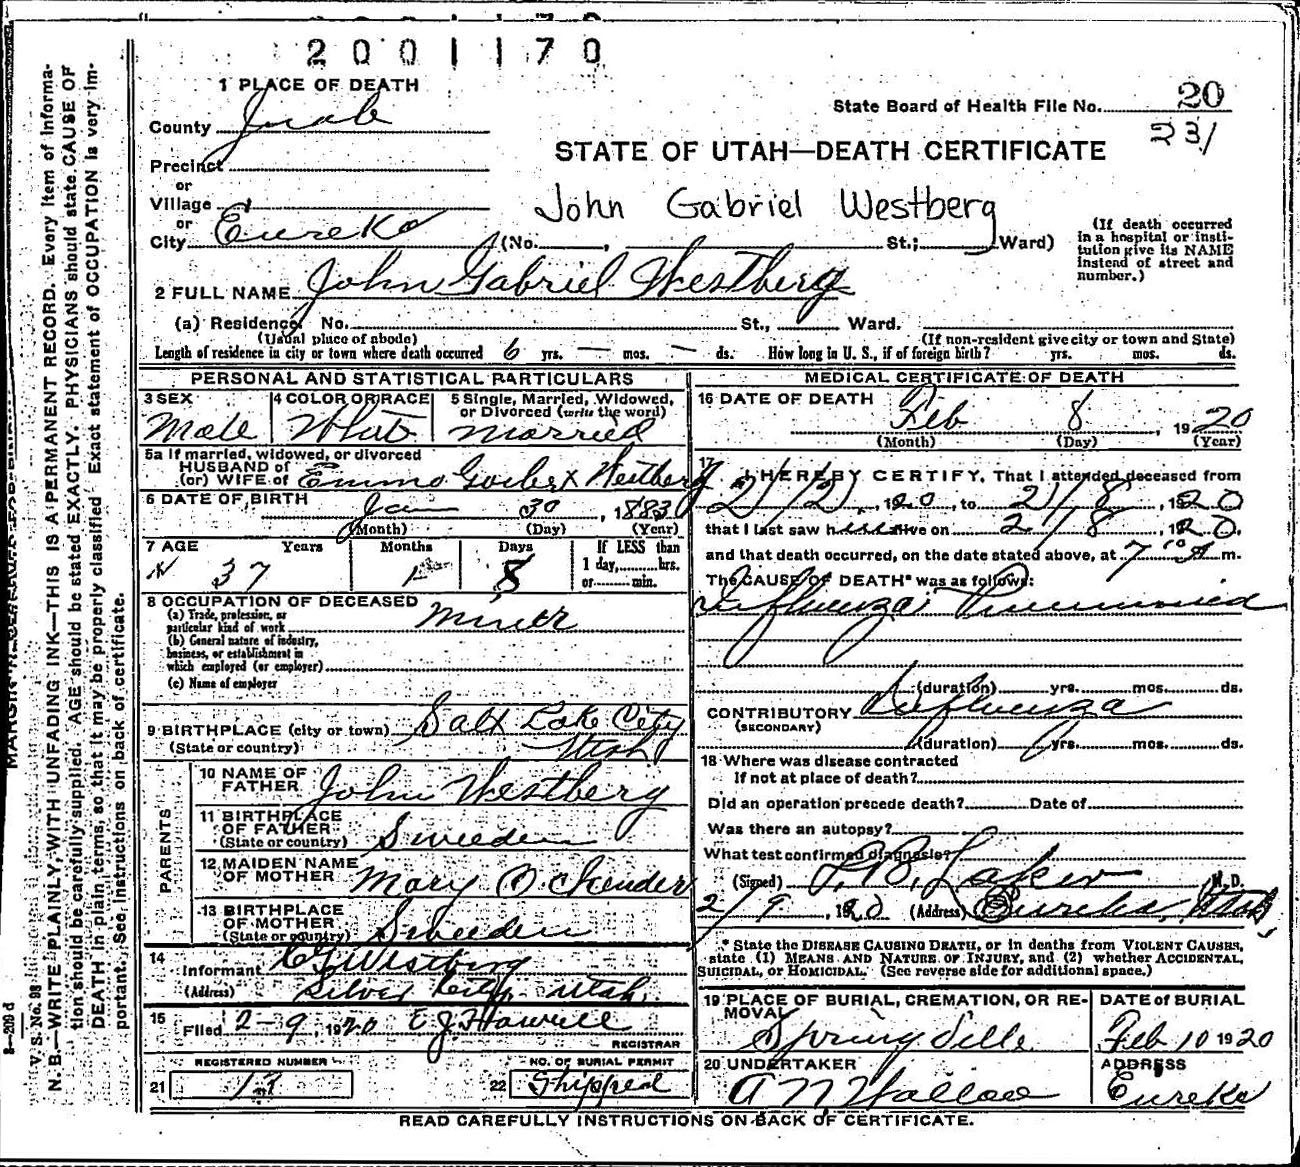 2001170
1 PLACE OF DEATH
State Board of Health File No. 20
231
County Juab
STATE OF UTAH—DEATH CERTIFICATE
Precinct
or
Village
John Gabriel Westberg
or
City Eureka (No. , St.; Ward)
(If death occurred in a hospital or insti-
tution give its NAME
instead of street and
number.)
2 FULL NAME John Gabriel Westberg
(a) Residence, No. St., Ward.
(Usual place of abode) (If non-resident give city or town and State)
Length of residence in city or town where death occurred 6 yrs. — mos. — ds. How long in U. S., if of foreign birth? yrs. mos. ds.
PERSONAL AND STATISTICAL PARTICULARS
3 SEX 4 COLOR OR RACE 5 Single, Married, Widowed,
or Divorced (write the word)
Male White Married
5a If married, widowed, or divorced
HUSBAND of
(or) WIFE of Emma Westberg
6 DATE OF BIRTH Jan 30, 1883
(Month) (Day) (Year)
7 AGE Years Months Days If LESS than
1 day, hrs.
or min.
37 8
8 OCCUPATION OF DECEASED
(a) Trade, profession, or
particular kind of work Miner
(b) General nature of industry,
business, or establishment in
which employed (or employer)
(c) Name of employer
9 BIRTHPLACE (city or town) Salt Lake City
(State or country) Utah
PARENTS
10 NAME OF
FATHER John Westberg
11 BIRTHPLACE
OF FATHER
(State or country) Sweeden
12 MAIDEN NAME
OF MOTHER Mary O.
13 BIRTHPLACE
OF MOTHER
(State or country) Sweeden
14
Informant Westberg
(Address) Silver City, Utah
15
Filed 2-9, 1920 E J Howell
REGISTRAR
REGISTERED NUMBER
21 13
NO. OF BURIAL PERMIT
22 Shipped
MEDICAL CERTIFICATE OF DEATH
16 DATE OF DEATH
Feb 8, 1920
(Month) (Day) (Year)
17
I HEREBY CERTIFY, That I attended deceased from
2/2, 1920, to 2/8, 1920
that I last saw him alive on 2/8, 1920,
and that death occurred, on the date stated above, at 7 A m.
The CAUSE OF DEATH* was as follows:
Influenza Pneumonia
(duration) yrs. mos. ds.
CONTRIBUTORY Influenza
(SECONDARY)
(duration) yrs. mos. ds.
18 Where was disease contracted
If not at place of death?
Did an operation precede death? Date of
Was there an autopsy?
What test confirmed diagnosis?
(Signed) M. D.
2/9, 1920 (Address) Eureka, Utah,
* State the DISEASE CAUSING DEATH, or in deaths from VIOLENT CAUSES,
state (1) MEANS AND NATURE OF INJURY, and (2) whether ACCIDENTAL,
SUICIDAL, or HOMICIDAL. (See reverse side for additional space.)
19 PLACE OF BURIAL, CREMATION, OR RE-
MOVAL
Springville
DATE of BURIAL
Feb 10 1920
20 UNDERTAKER
A N Wallace
ADDRESS
Eureka
READ CAREFULLY INSTRUCTIONS ON BACK OF CERTIFICATE.
V. S. No. 98
N. B.—WRITE PLAINLY, WITH UNFADING INK—THIS IS A PERMANENT RECORD. Every item of informa-
tion should be carefully supplied. AGE should be stated EXACTLY. PHYSICIANS should state CAUSE OF
DEATH in plain terms, so that it may be properly classified. Exact statement of OCCUPATION is very im-
portant. See instructions on back of certificate.